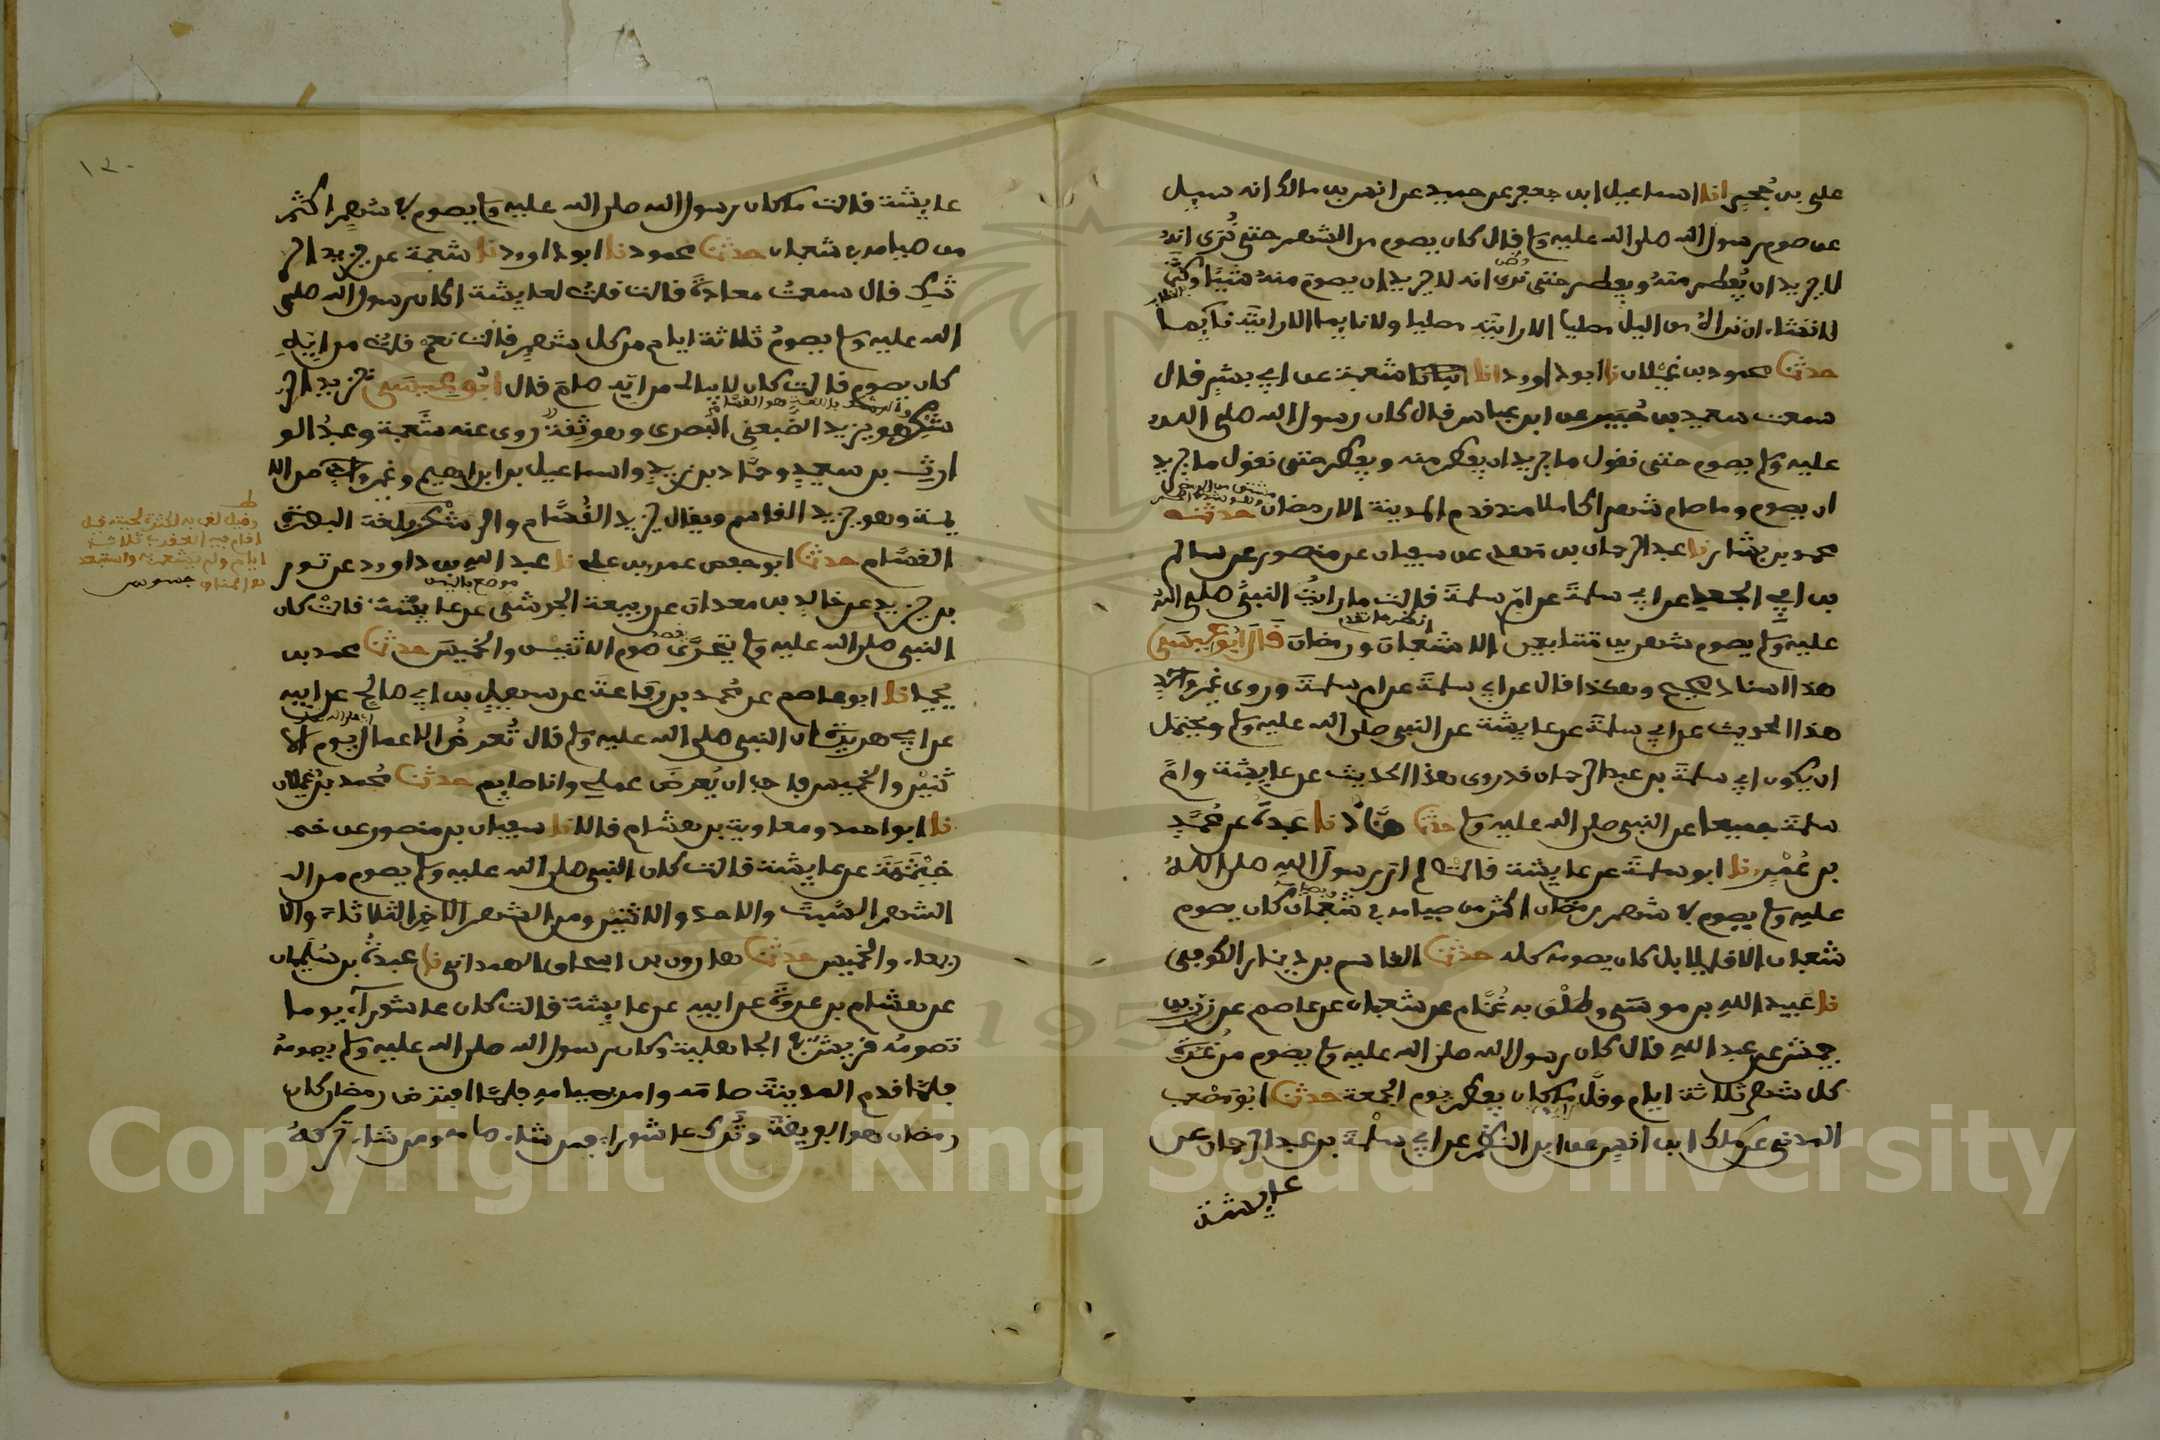 علي بن حجر انا اسماعيل ابن جعفر عن حميد عن انس بن مالك انه سيل
عن صوم رسول الله صلى الله عليه وسلم قال كان يصوم من الشهر حتى نرى انه
لا يريد ان يفطر منه ويفطر حتى نرى انه لا يريد ان يصوم منه شيئا وكنت
لا تشاء ان تراه من اليل مصليا الا رايته مصليا ولا نايما الا رايته نايما
حدثنا محمود بن غيلان نا ابو داوود انا انبانا شعبة عن ابي بشر قال
سمعت سعيد بن جبير عن ابن عباس قال كان رسول الله صلى الله
عليه وسلم يصوم حتى نقول ما يريد ان يفطر منه ويفطر حتى نقول ما يريد
ان يصوم وما صام شهرا كاملا منذ قدم المدينة الا رمضان حدثنا
محمد بن بشار نا عبد الرحمان بن مهدي عن سفيان عن منصور عن سالم
بن ابي الجعد عن ابي سلمة عن ام سلمة قالت ما رايت النبي صلى الله
عليه وسلم يصوم شهرين متتابعين الا شعبان ورمضان قال ابو عيسى
هذا اسناد صحيح وهكذا قال عن ابي سلمة عن ام سلمة وروى غير واحد
هذا الحديث عن ابي سلمة عن عايشة عن النبي صلى الله عليه وسلم ويحتمل
ان يكون ابي سلمة بن عبد الرحمان قد روى هذا الحديث عن عايشة وام
سلمة جميعا عن النبي صلى الله عليه وسلم حدثنا هناد نا عبدة عن محمد
بن عمر نا ابو سلمة عن عايشة قالت لم ار رسول الله صلى الله
عليه وسلم يصوم في شهر رمضان اكثر من صيامه في شعبان كان يصوم
شعبان الا قليلا بل كان يصومه كله حدثنا القاسم بن دينار الكوفي
نا عبيد الله بن موسى وطلق بن غنام عن شعبان عن عاصم عن زر بن
حبيش عن عبد الله قال كان رسول الله صلى الله عليه وسلم يصوم من غرة
كل شهر ثلاثة ايام وقل ما كان يفطر يوم الجمعة حدثنا ابو مصعب
المدني عن مالك ابن انس عن ابي النضر عن ابي سلمة بن عبد الرحمان عن
عايشة
عايشة قالت ما كان رسول الله صلى الله عليه وسلم يصوم في شهر اكثر
من صيامه في شعبان حدثنا محمود نا ابو داوود نا شعبة عن يزيد الر
شك قال سمعت معاذة قالت قلت لعايشة اكان رسول الله صلى
الله عليه وسلم يصوم ثلاثة ايام من كل شهر قالت نعم قلت من ايه
كان يصوم قالت كان لا يبالي من ايه صام قال ابو عيسى يزيد الر
شك هو يزيد الضبعي البصري وهو ثقة روى عنه شعبة وعبد الو
ارث بن سعيد وحماد بن زيد واسماعيل بن ابراهيم وغير واحد من الا
يمة وهو يزيد القاسم ويقال يزيد القسام والرشك بلغة البصرة
القسام حدثنا ابو حفص عمر بن علي نا عبد الله بن داوود عن ثور
بن يزيد عن خالد بن معدان عن ربيعة الجرشي عن عايشة قالت كان
النبي صلى الله عليه وسلم يتحرى صوم الاثنين والخميس حدثنا محمد بن
يحيى نا ابو عاصم عن محمد بن رفاعة عن سهيل بن ابي صالح عن ابيه
عن ابي هريرة ان النبي صلى الله عليه وسلم قال تعرض الاعمال يوم الا
ثنين والخميس فاحب ان يعرض عملي وانا صايم حدثنا محمد بن غيلان
نا ابو احمد ومعاوية بن هشام قالا نا سفيان عن منصور عن خي
خيثمة عن عايشة قالت كان النبي صلى الله عليه وسلم يصوم من ال
الشهر السبت والاحد والاثنين ومن الشهر الاخر الثلاثاء والا
ربعاء والخميس حدثنا هارون بن اسحاق الهمداني نا عبدة بن سليمان
عن هشام بن عروة عن ابيه عن عايشة قالت كان عاشوراء يوما
تصومه قريش في الجاهلية وكان رسول الله صلى الله عليه وسلم يصومه
فلما قدم المدينة صامه وامر بصيامه فلما افترض رمضان كان
رمضان هو الفريضة وترك عاشوراء فمن شاء صامه ومن شاء تركه